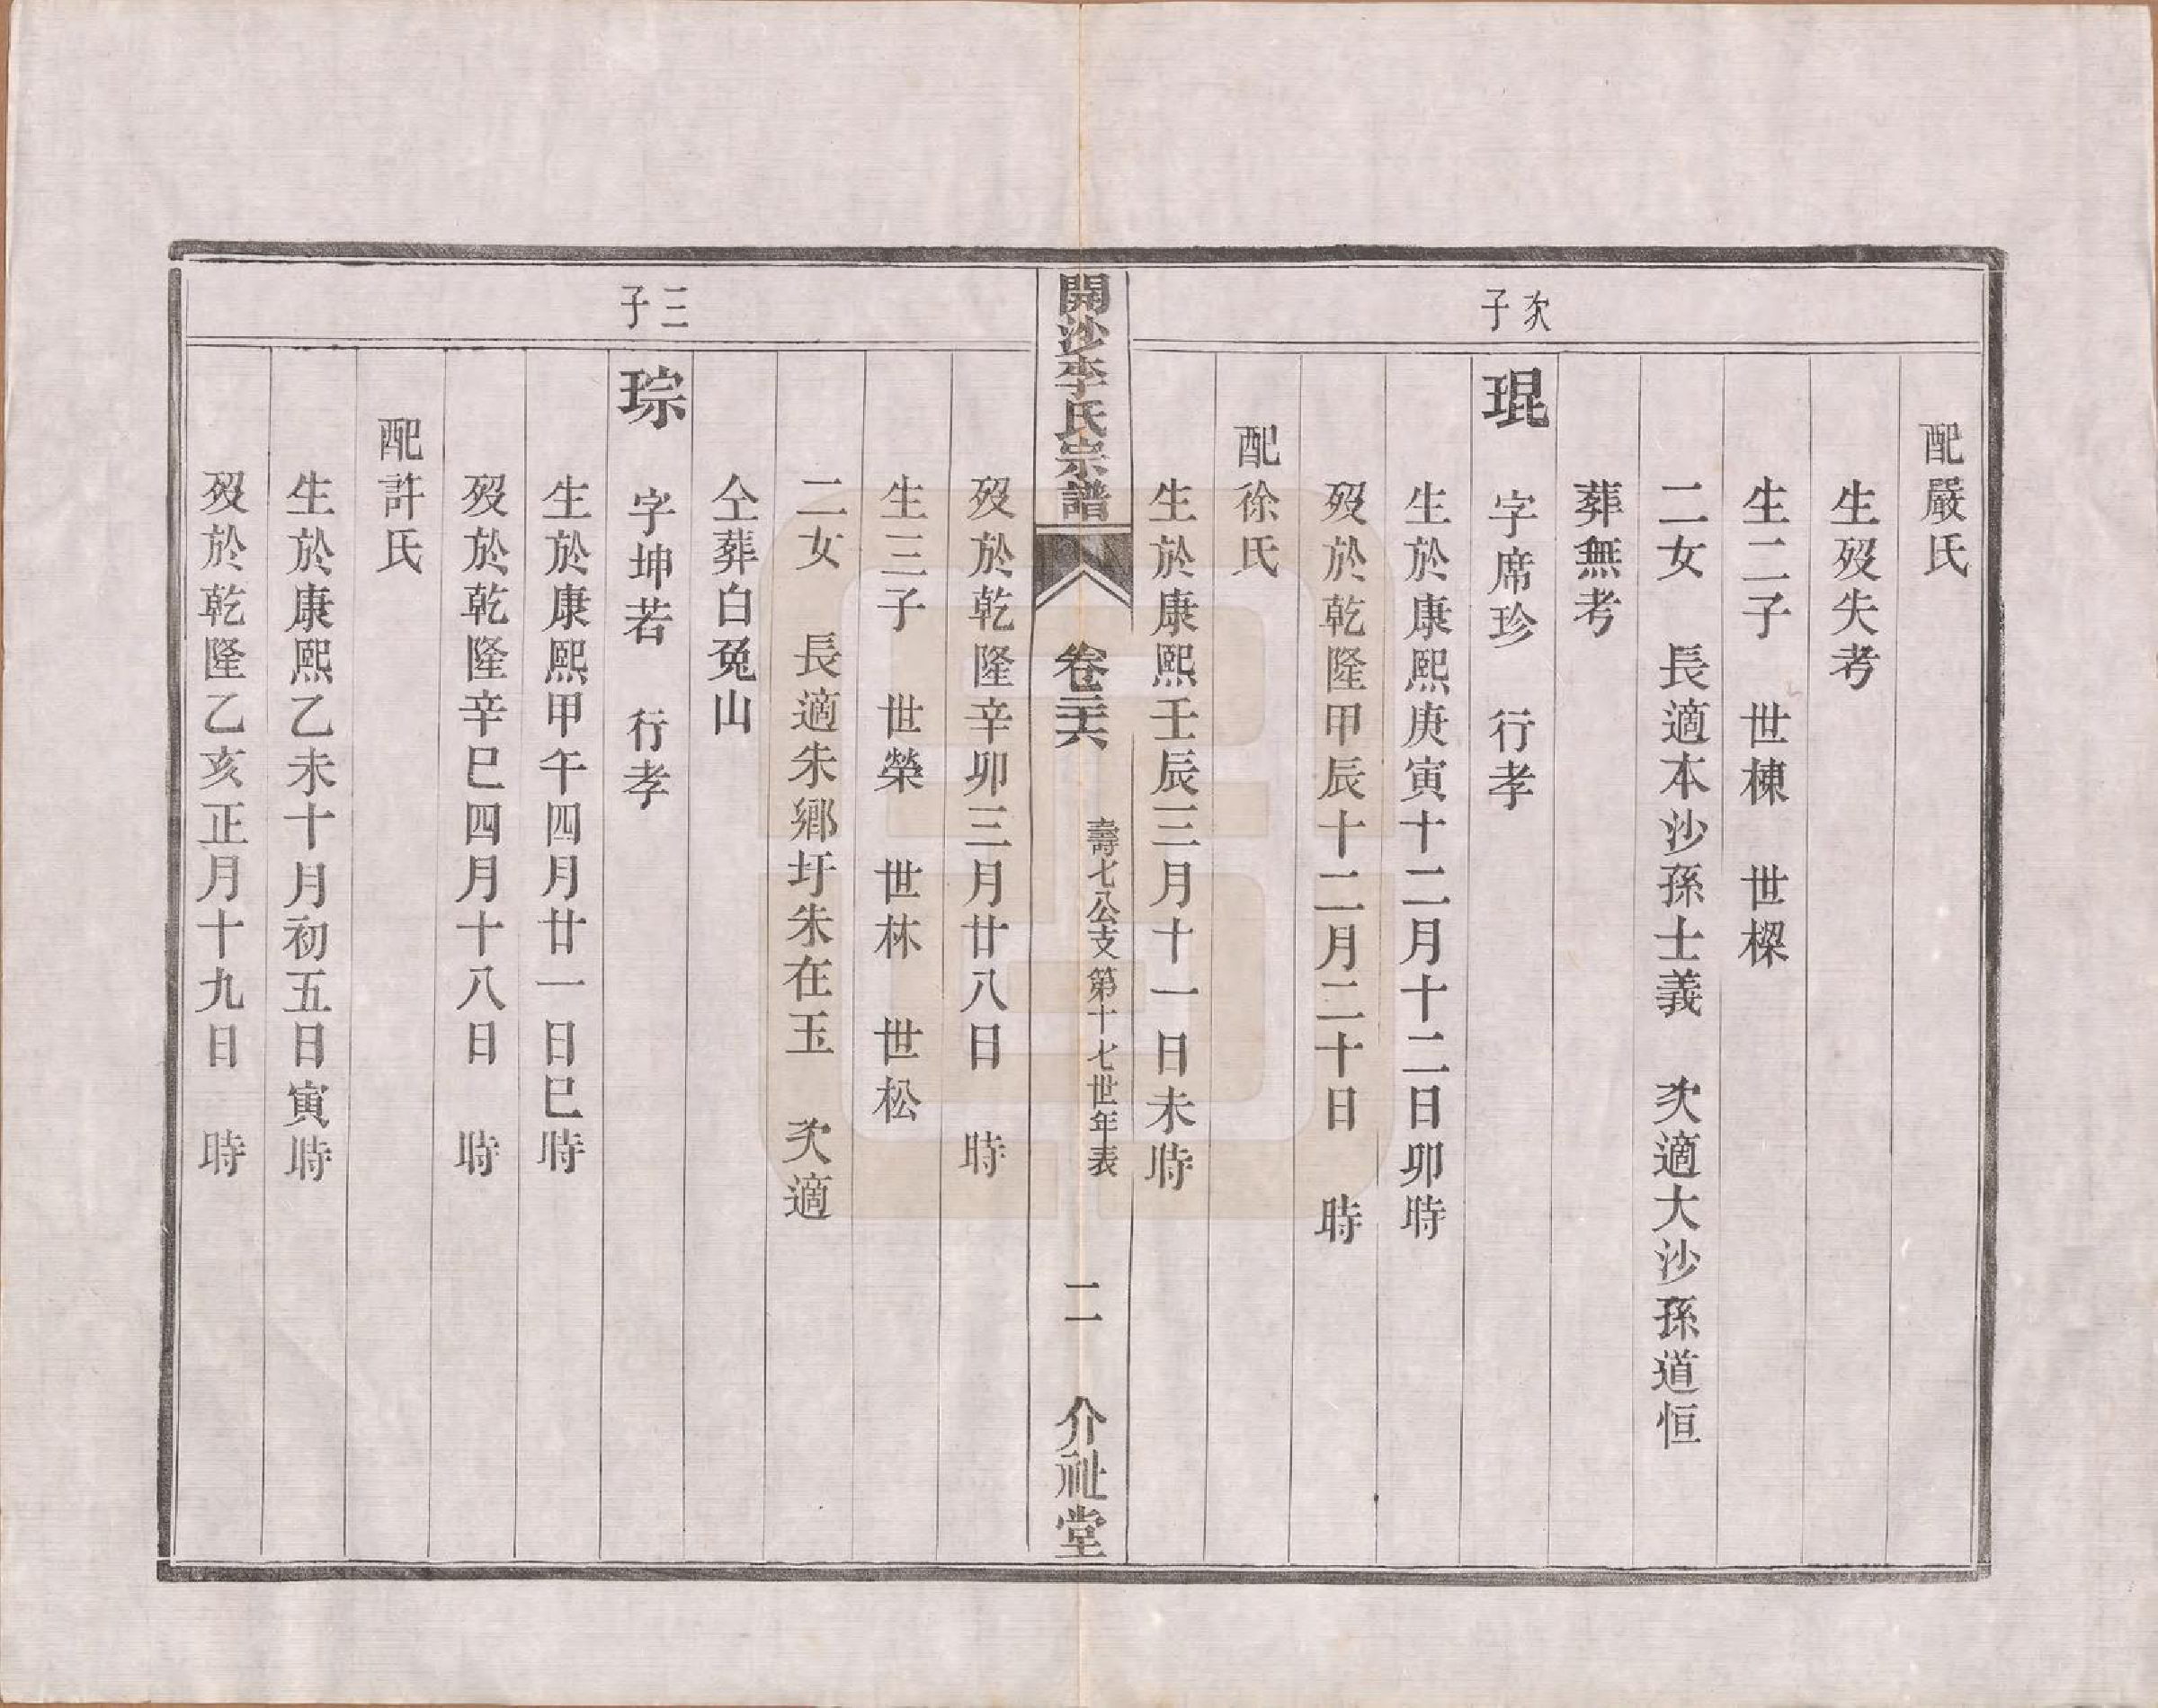 配嚴氏
生歿失考
生二子　世棟　世樑
二女　長適本沙孫士義　次適大沙孫道恒
葬無考
次子
琨　字席珍　行孝
生於康熙庚寅十二月十二日卯時
歿於乾隆甲辰十二月二十日　時
配徐氏
生於康熙壬辰三月十一日未時
開沙李氏宗譜　卷三十六　壽七八公支第十七世年表　二　介祉堂
歿於乾隆辛卯三月廿八日　時
生三子　世榮　世林　世松
二女　長適朱鄉圩朱在玉　次適
仝葬白兔山
三子
琮　字坤若　行孝
生於康熙甲午四月廿一日巳時
歿於乾隆辛巳四月十八日　時
配許氏
生於康熙乙未十月初五日寅時
歿於乾隆乙亥正月十九日　時